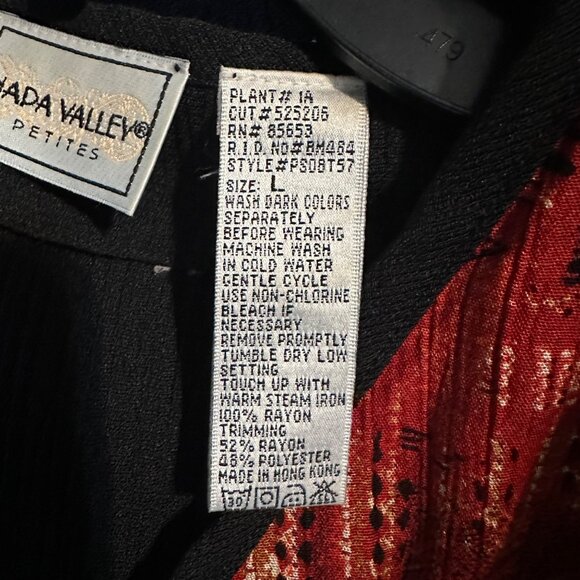 NAPA VALLEY®
PETITES
479
PLANT# 1A
CUT# 525206
RN# 85653
R.I.D. NO# BM484
STYLE#PS08T57
SIZE: L
WASH DARK COLORS
SEPARATELY
BEFORE WEARING
MACHINE WASH
IN COLD WATER
GENTLE CYCLE
USE NON-CHLORINE
BLEACH IF
NECESSARY
REMOVE PROMPTLY
TUMBLE DRY LOW
SETTING
TOUCH UP WITH
WARM STEAM IRON
100% RAYON
TRIMMING
52% RAYON
48% POLYESTER
MADE IN HONG KONG
30